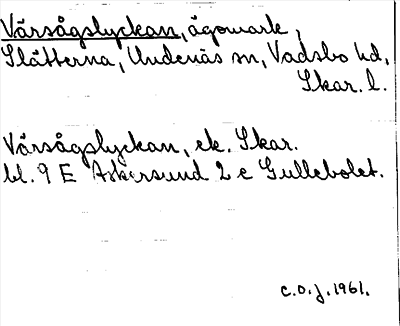 Värsågslyckan, ägomark,
Slätterna, Undenäs sn, Vadsbo hd,
Skar. l.
Värsågslyckan, ek. Skar.
bl. 9 E Askersund 2 c Gullebolet.
c.o.j. 1961.